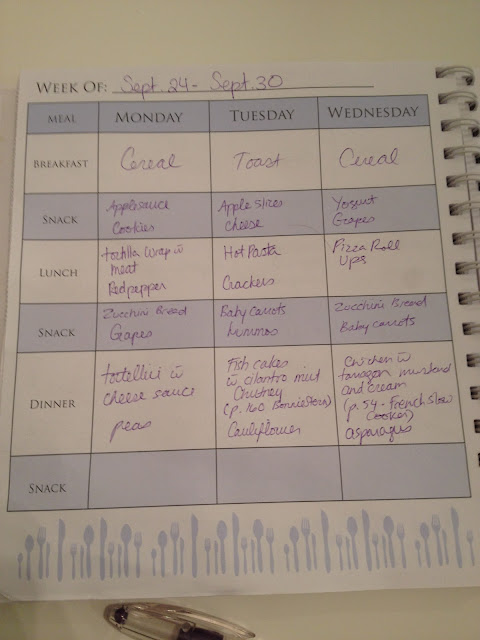 WEEK OF: Sept. 24 - Sept. 30
MEAL MONDAY TUESDAY WEDNESDAY
BREAKFAST Cereal Toast Cereal
SNACK
Applesauce
Cookies
Apple slices
cheese
Yogurt
Grapes
LUNCH
tortilla wrap w
meat
Red pepper
Hot Pasta
Crackers
Pizza Roll
Ups
SNACK
Zucchini Bread
Grapes
Baby carrots
Hummos
Zucchini Bread
Baby carrots
DINNER
tortellini w
cheese sauce
peas
Fish cakes
w cilantro mint
Chutney
(p. 160 Bonnie Stern)
Cauliflower
Chicken w
tarragon mustard
and cream
(p. 54 - French Slow
Cooker)
asparagus
SNACK